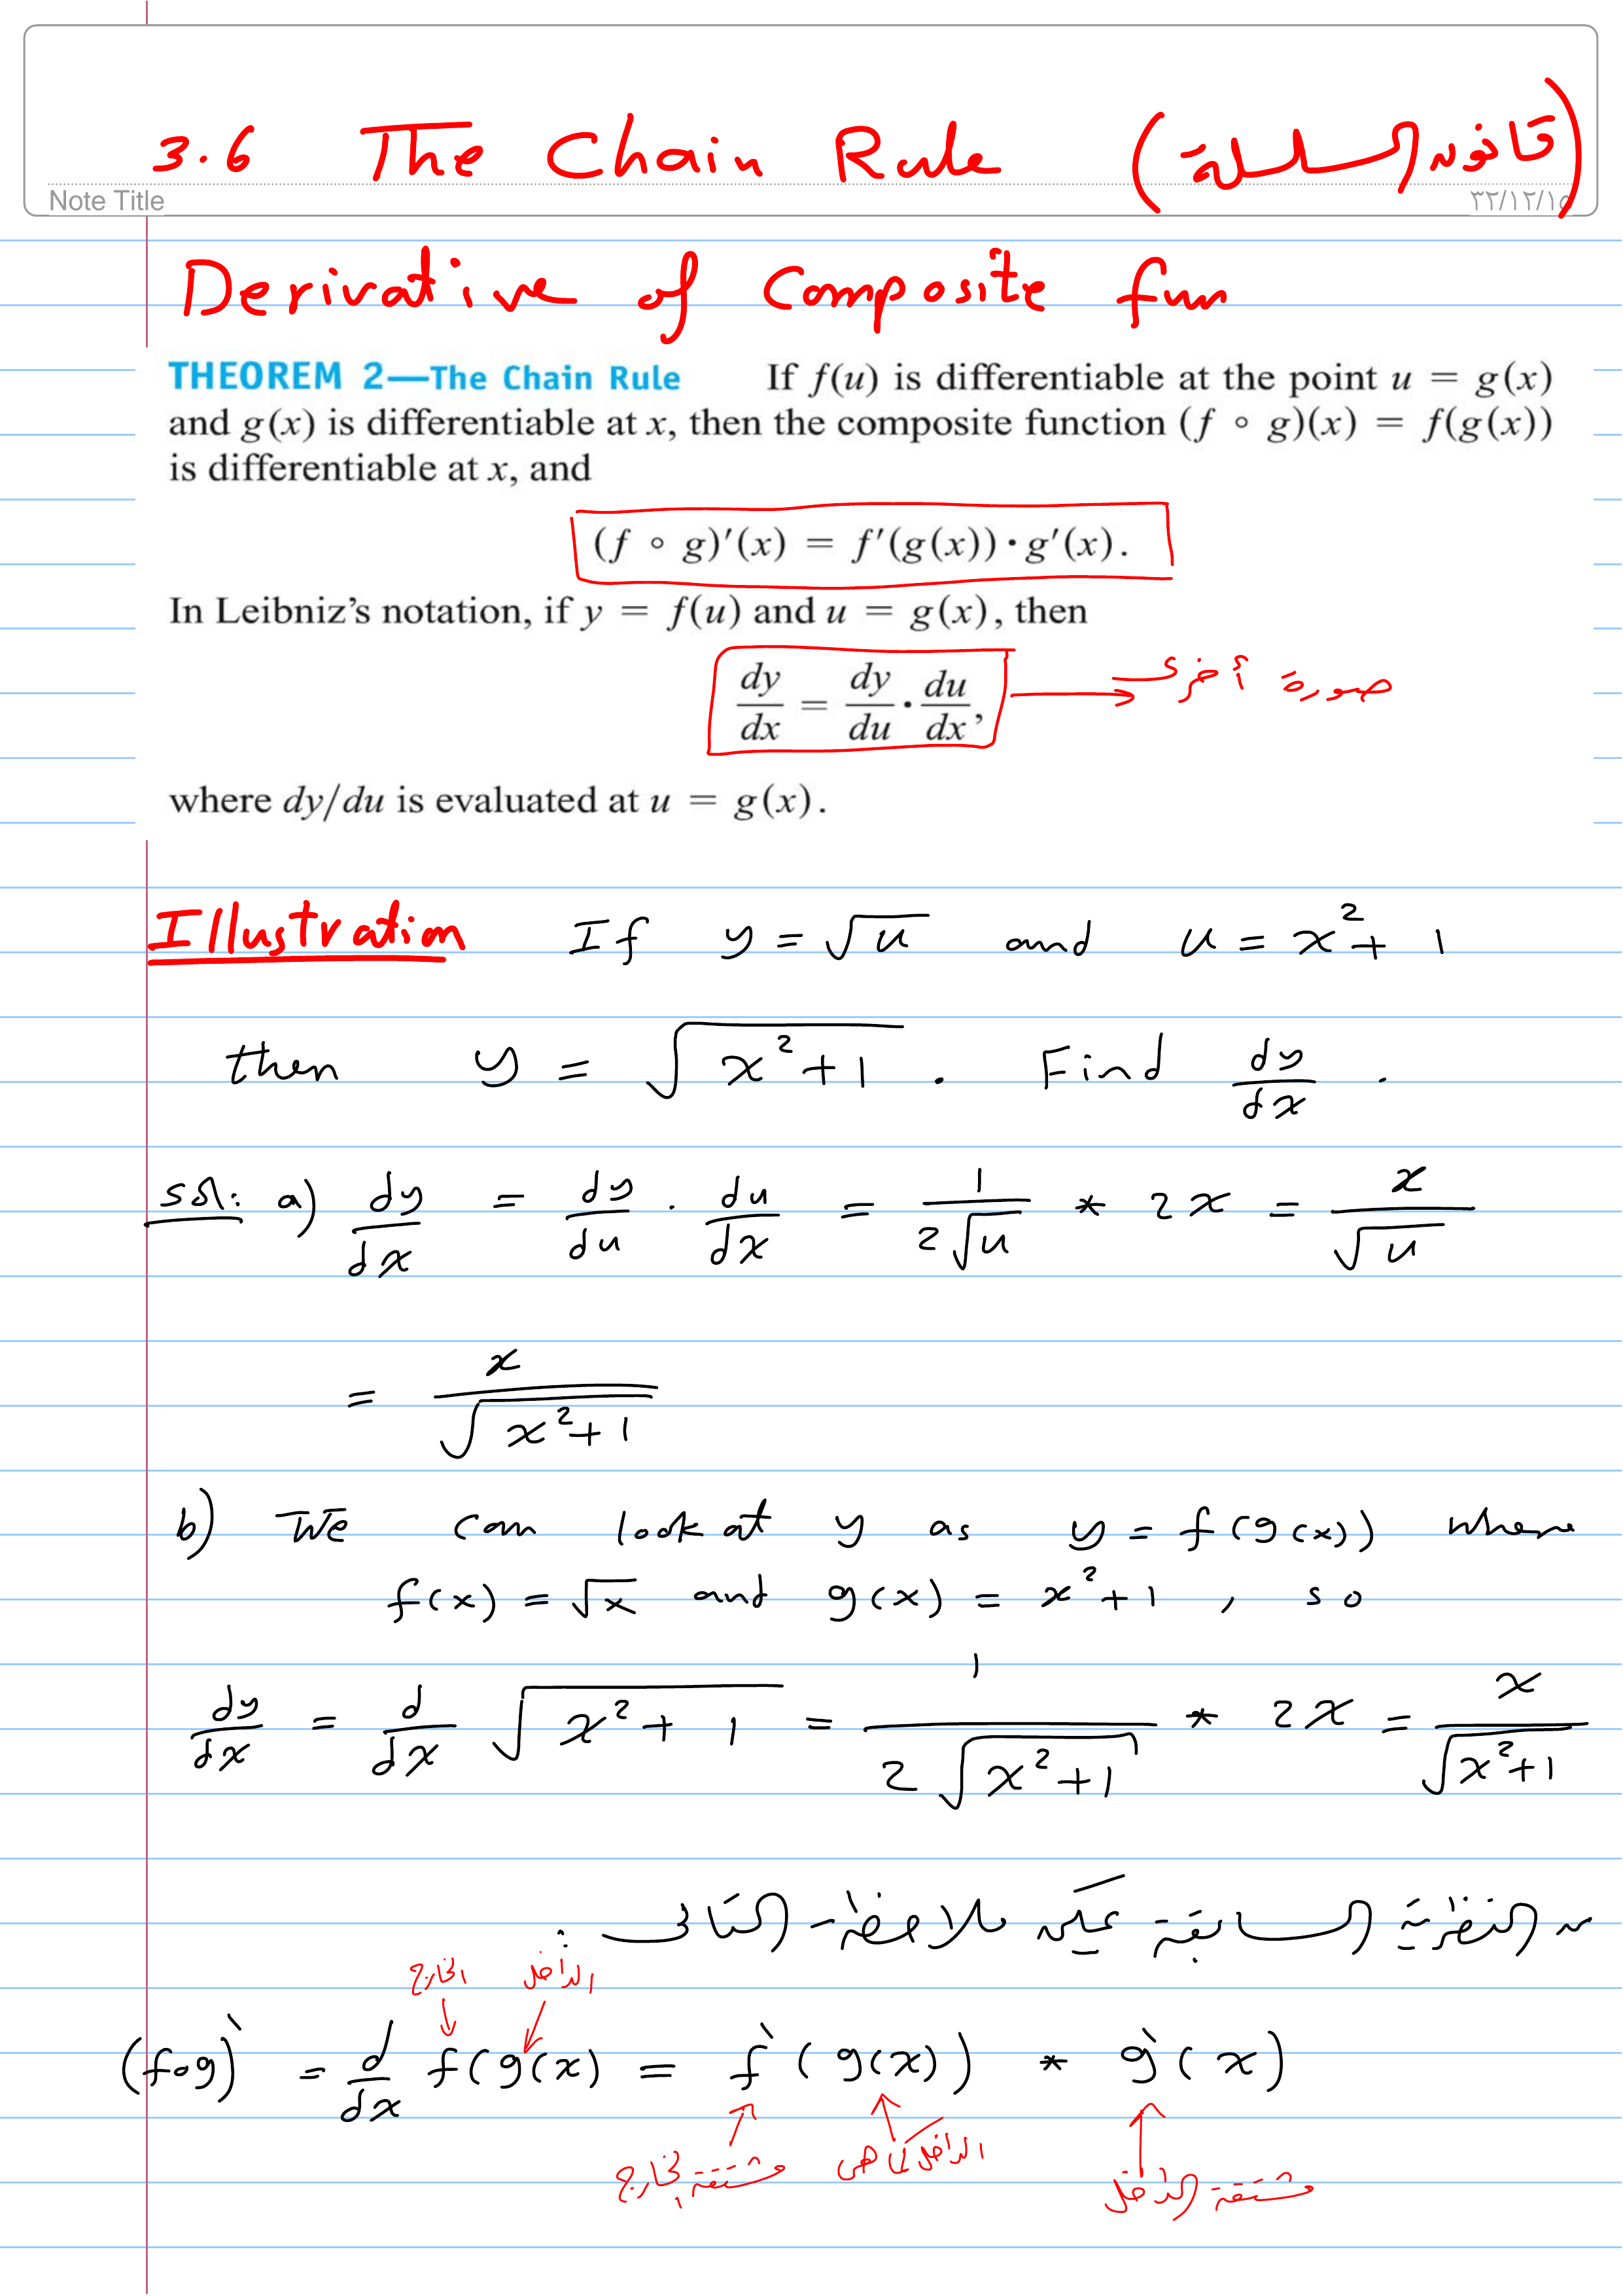 3.6 The Chain Rule (قانون السلسلة)
Note Title
Derivative of Composite fun
THEOREM 2—The Chain Rule If f(u) is differentiable at the point u = g(x)
and g(x) is differentiable at x, then the composite function (f ∘ g)(x) = f(g(x))
is differentiable at x, and
(f ∘ g)′(x) = f′(g(x)) · g′(x).
In Leibniz's notation, if y = f(u) and u = g(x), then
dy/dx = dy/du · du/dx, → صورة أخرى
where dy/du is evaluated at u = g(x).
Illustration If y = √u and u = x² + 1
then y = √(x² + 1) . Find dy/dx .
sol: a) dy/dx = dy/du · du/dx = 1/(2√u) * 2x = x/√u
= x/√(x² + 1)
b) We can look at y as y = f(g(x)) where
f(x) = √x and g(x) = x² + 1 , so
dy/dx = d/dx √(x² + 1) = 1/(2√(x² + 1)) * 2x = x/√(x² + 1)
من النظرية السابقة يمكن ملاحظة التالى :
الخارج الداخل
(f∘g)` = d/dx f(g(x) = f`(g(x)) * g`(x)
مشتقة الخارج الداخل كما هى مشتقة الداخل